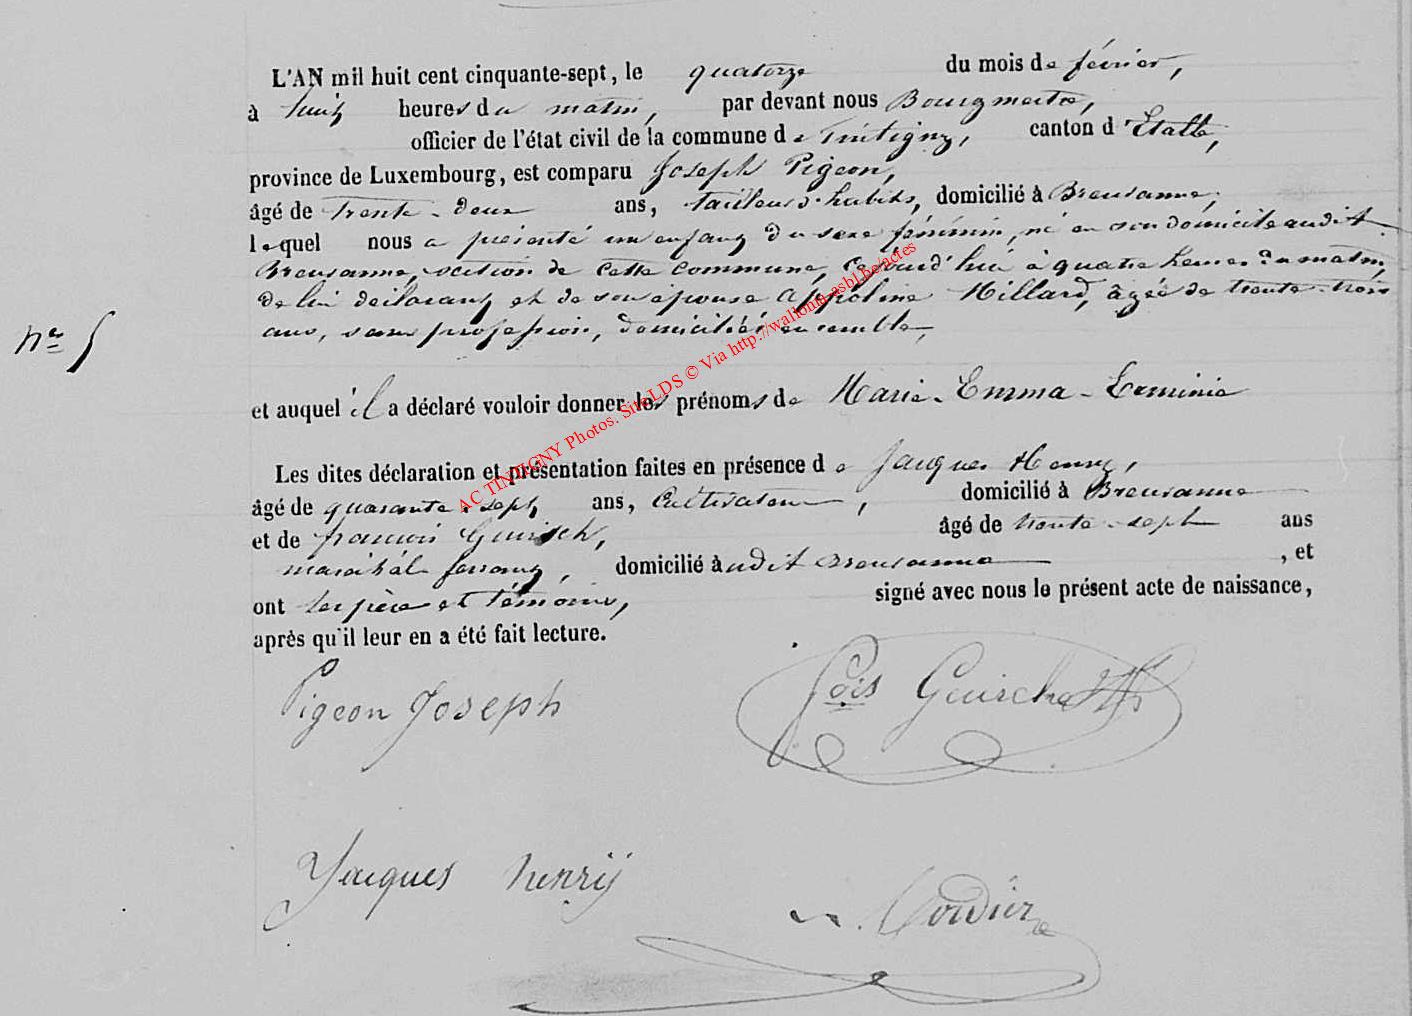 L'AN mil huit cent cinquante-sept, le quatorze du mois de février,
à huit heures du matin, par devant nous Bourgmestre,
officier de l'état civil de la commune de Tintigny, canton d'Etalle,
province de Luxembourg, est comparu Joseph Pigeon,
âgé de trente-deux ans, tailleur d'habits, domicilié à Breuvanne,
lequel nous a présenté un enfant du sexe féminin, né en son domicile audit
Breuvanne, section de cette commune, cejourd'hui à quatre heures du matin,
de lui déclarant et de son épouse Appoline Millard, âgée de trente-trois
ans, sans profession, domiciliés ensemble,
N° 5
et auquel il a déclaré vouloir donner les prénoms de Marie-Emma-Erminie
Les dites déclaration et présentation faites en présence de Jacques Henry,
âgé de quarante-sept ans, cultivateur, domicilié à Breuvanne
et de françois Guirsch, âgé de trente-sept ans
maréchal ferrant, domicilié audit Breuvanne, et
ont les père et témoins, signé avec nous le présent acte de naissance,
après qu'il leur en a été fait lecture.
Pigeon Joseph
Fois Guirsch
Jacques henrÿ
Cordier
AC TINTIGNY Photos. Site LDS © Via http://wallonia-asbl.be/actes